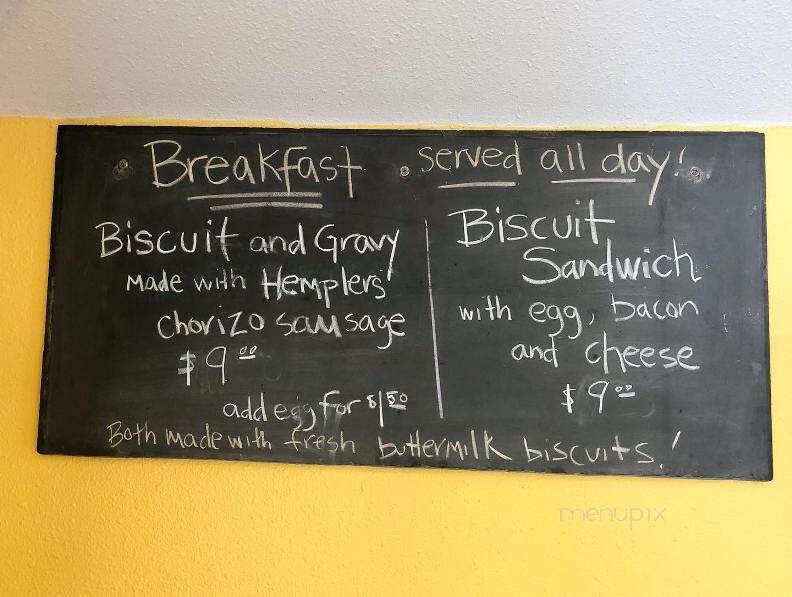 Breakfast served all day!
Biscuit and Gravy
Made with Hemplers'
chorizo sausage
$9.00
add egg for $1.50
Biscuit
Sandwich
with egg, bacon
and cheese
$9.00
Both made with fresh buttermilk biscuits!
menupix